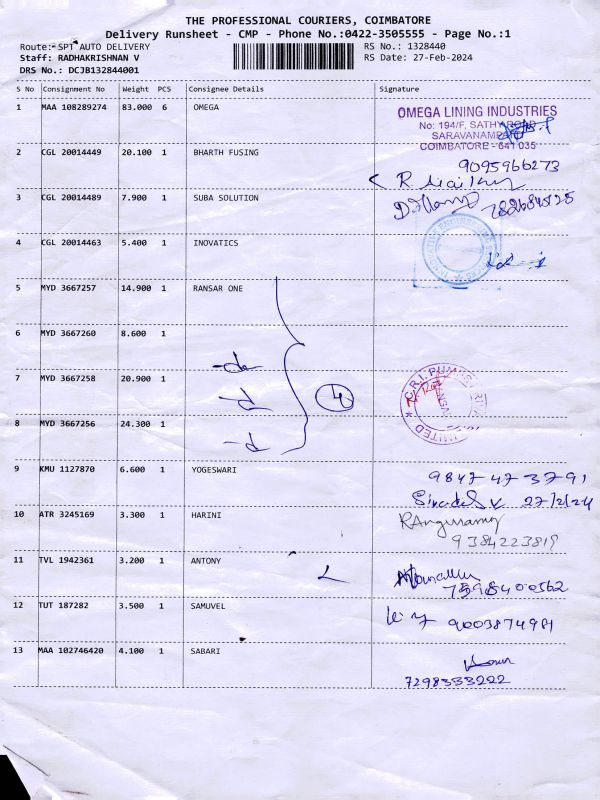 THE PROFESSIONAL COURIERS, COIMBATORE
Delivery Runsheet - CMP - Phone No.:0422-3505555 - Page No.:1
Route:- SPT AUTO DELIVERY
Staff: RADHAKRISHNAN V
DRS No.: DCJB132844001
RS No.: 1328440
RS Date: 27-Feb-2024
S No Consignment No Weight PCS Consignee Details Signature
1 MAA 108289274 83.000 6 OMEGA
OMEGA LINING INDUSTRIES
No: 194/F, SATHY ROAD
SARAVANAMPATTI
COIMBATORE - 641 035
2 CGL 20014449 20.100 1 BHARTH FUSING
9095966273
3 CGL 20014489 7.900 1 SUBA SOLUTION
4 CGL 20014463 5.400 1 INOVATICS
5 MYD 3667257 14.900 1 RANSAR ONE
6 MYD 3667260 8.600 1
-do-
7 MYD 3667258 20.900 1
4
C.R.I. PUMPS
LIMITED
8 MYD 3667256 24.300 1
9 KMU 1127870 6.600 1 YOGESWARI
9847473791
27/2/24
10 ATR 3245169 3.300 1 HARINI
9384223819
11 TVL 1942361 3.200 1 ANTONY
12 TUT 187282 3.500 1 SAMUVEL
9003874981
13 MAA 102746420 4.100 1 SABARI
7298333222